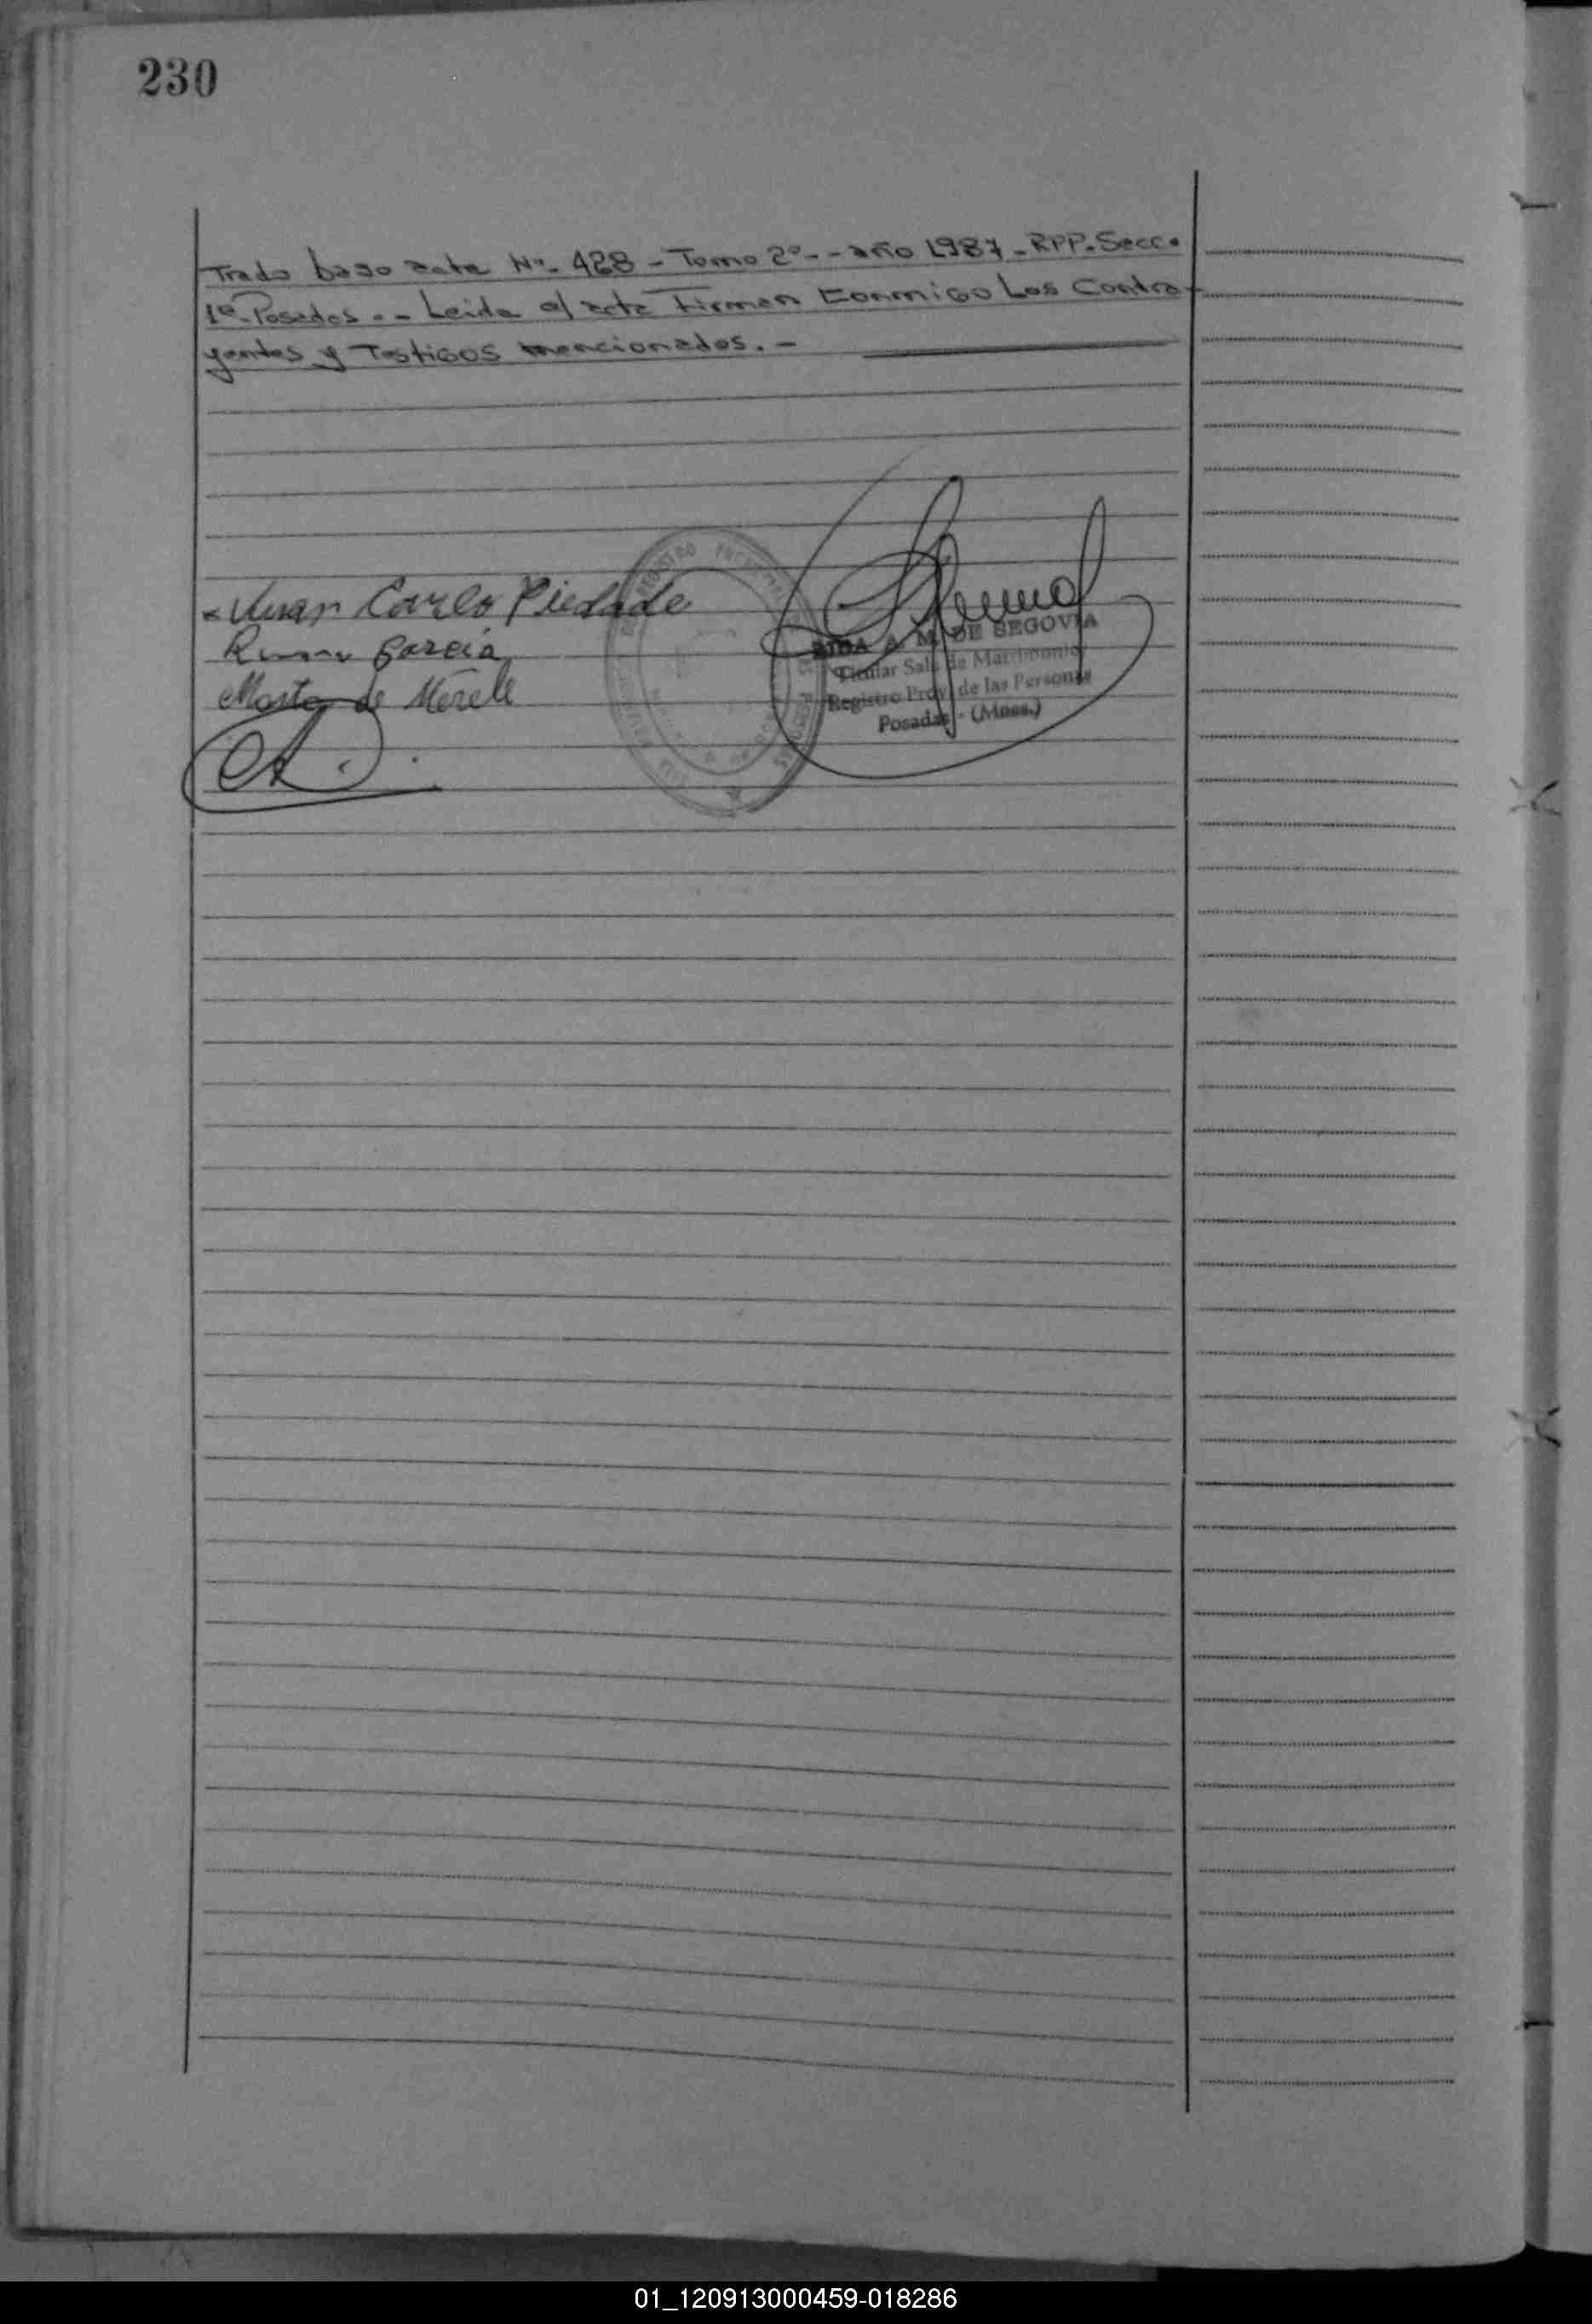 230
trado bajo acta Nº. 428 - Tomo 2º - - año 1987 - RPP. Secc.
1ª. Posadas. - Leida el acta Firman Conmigo Los Contra-
yentes y Testigos mencionados. -
Juan Carlo Piedade
García
Marta de Merele
A. M. DE SEGOVIA
Titular Sala de Matrimonio
Registro Prov. de las Personas
Posadas - (Mnes.)
REGISTRO PROVINCIAL
01_120913000459-018286